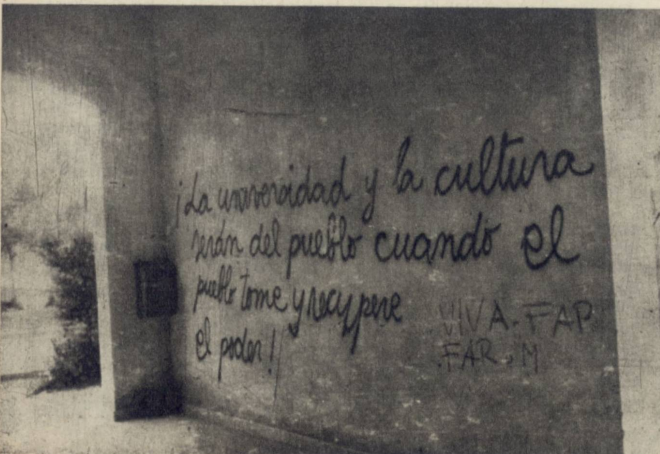 ¡La universidad y la cultura
serán del pueblo cuando el
pueblo tome y recupere
el poder!
VIVA. FAP
.FAR. M